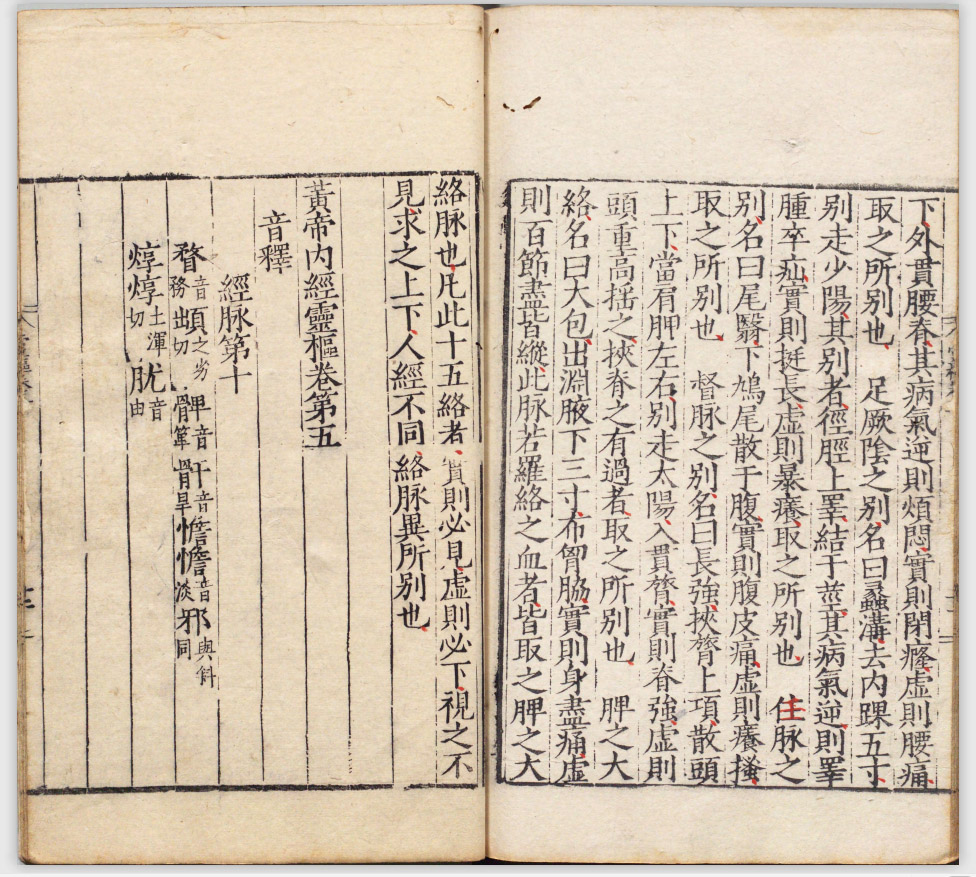 下外貫腰脊其病氣逆則煩悶實則閉癃虛則腰痛
取之所別也　足厥陰之別名曰蠡溝去內踝五寸
別走少陽其別者徑脛上睪結于莖其病氣逆則睪
腫卒疝實則挺長虛則暴癢取之所別也　住脉之
別名曰尾翳下鳩尾散于腹實則腹皮痛虛則癢搔
取之所別也　督脉之別名曰長強挾膂上項散頭
上下當肩胛左右別走太陽入貫膂實則脊強虛則
頭重高揺之挾脊之有過者取之所別也　脾之大
絡名曰大包出淵腋下三寸布胷脇實則身盡痛虛
則百節盡皆縱此脉若羅絡之血者皆取之脾之大
絡脉也凡此十五絡者實則必見虛則必下視之不
見求之上下人經不同絡脉異所別也
黃帝內經靈樞卷第五
音釋
經脉第十
瞀音務䪼之劣切髀音箄骭音旱憺憺音淡邪與斜同
焞焞土渾切肬音由